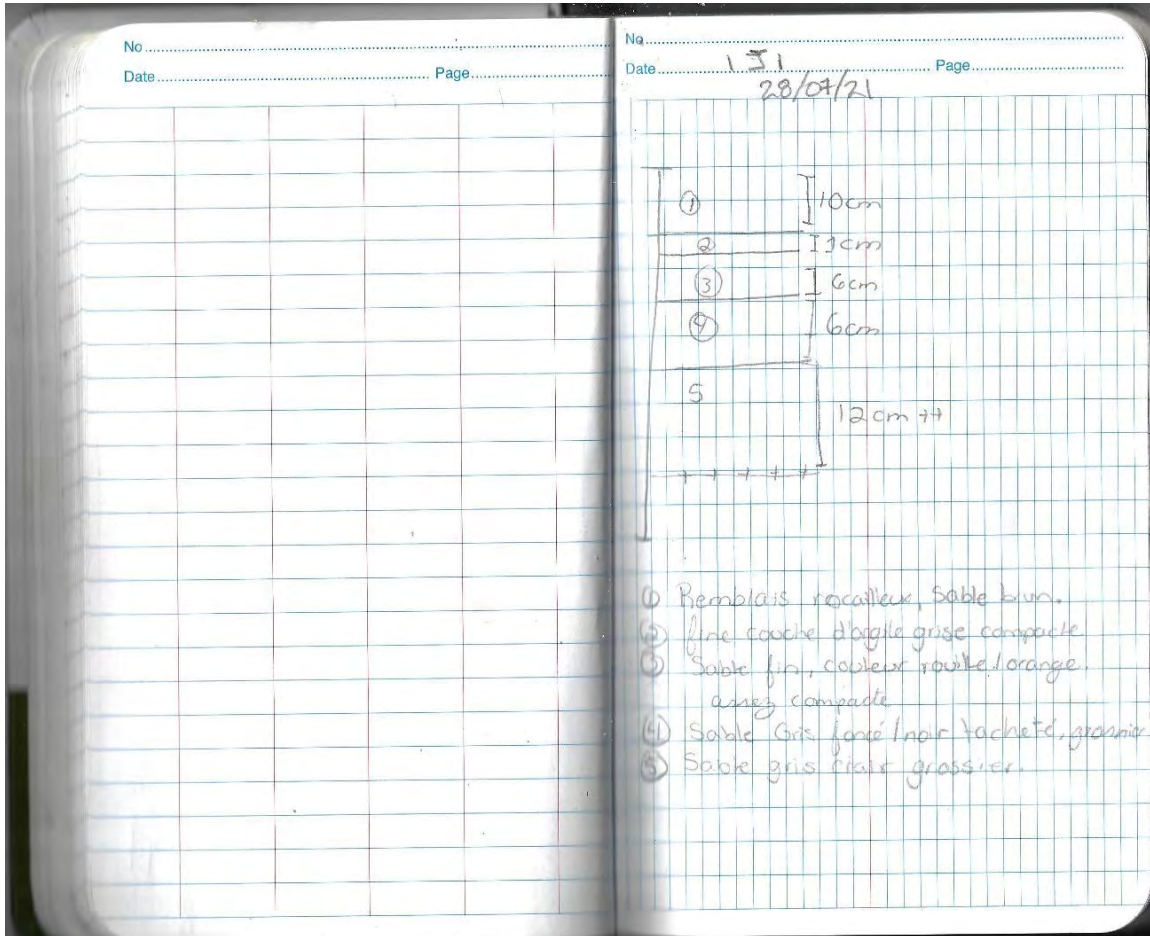 No
Date Page
No
Date 1J1 Page
28/07/21
① 10cm
2 1cm
③ 6cm
④ 6cm
5 12cm ++
① Remblais rocailleux, sable brun.
② fine couche d'argile grise compacte
③ Sable fin, couleur rouille/orange.
assez compacte
④ Sable Gris foncé/noir tacheté, grossier
⑤ Sable gris clair grossier.